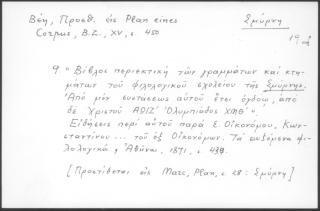 Βέη, Προσθ. εἰς Plan eines
Corpus, B.Z., XV, σ. 450
Σμύρνη
19
9. "Βίβλος περιεκτικὴ τῶν γραμμάτων καὶ κτη-
μάτων τοῦ φιλολογικοῦ σχολείου τῆς Σμύρνης.
Ἀπὸ μὲν συστάσεως αὐτοῦ ἔτει ὀγδόῳ, ἀπὸ
δὲ Χριστοῦ ΑΩΙΖ΄ Ὀλυμπιάδος ΧΜΘ΄".
Εἰδήσεις περὶ αὐτοῦ παρὰ Σ. Οἰκονόμου, Κων-
σταντίνου ... τοῦ ἐξ Οἰκονόμων. Τὰ σωζόμενα φι-
λολογικά, Ἀθήναι, 1871, σ. 439.
[Προστίθεται εἰς Marc, Plan, σ. 28 : Σμύρνη]